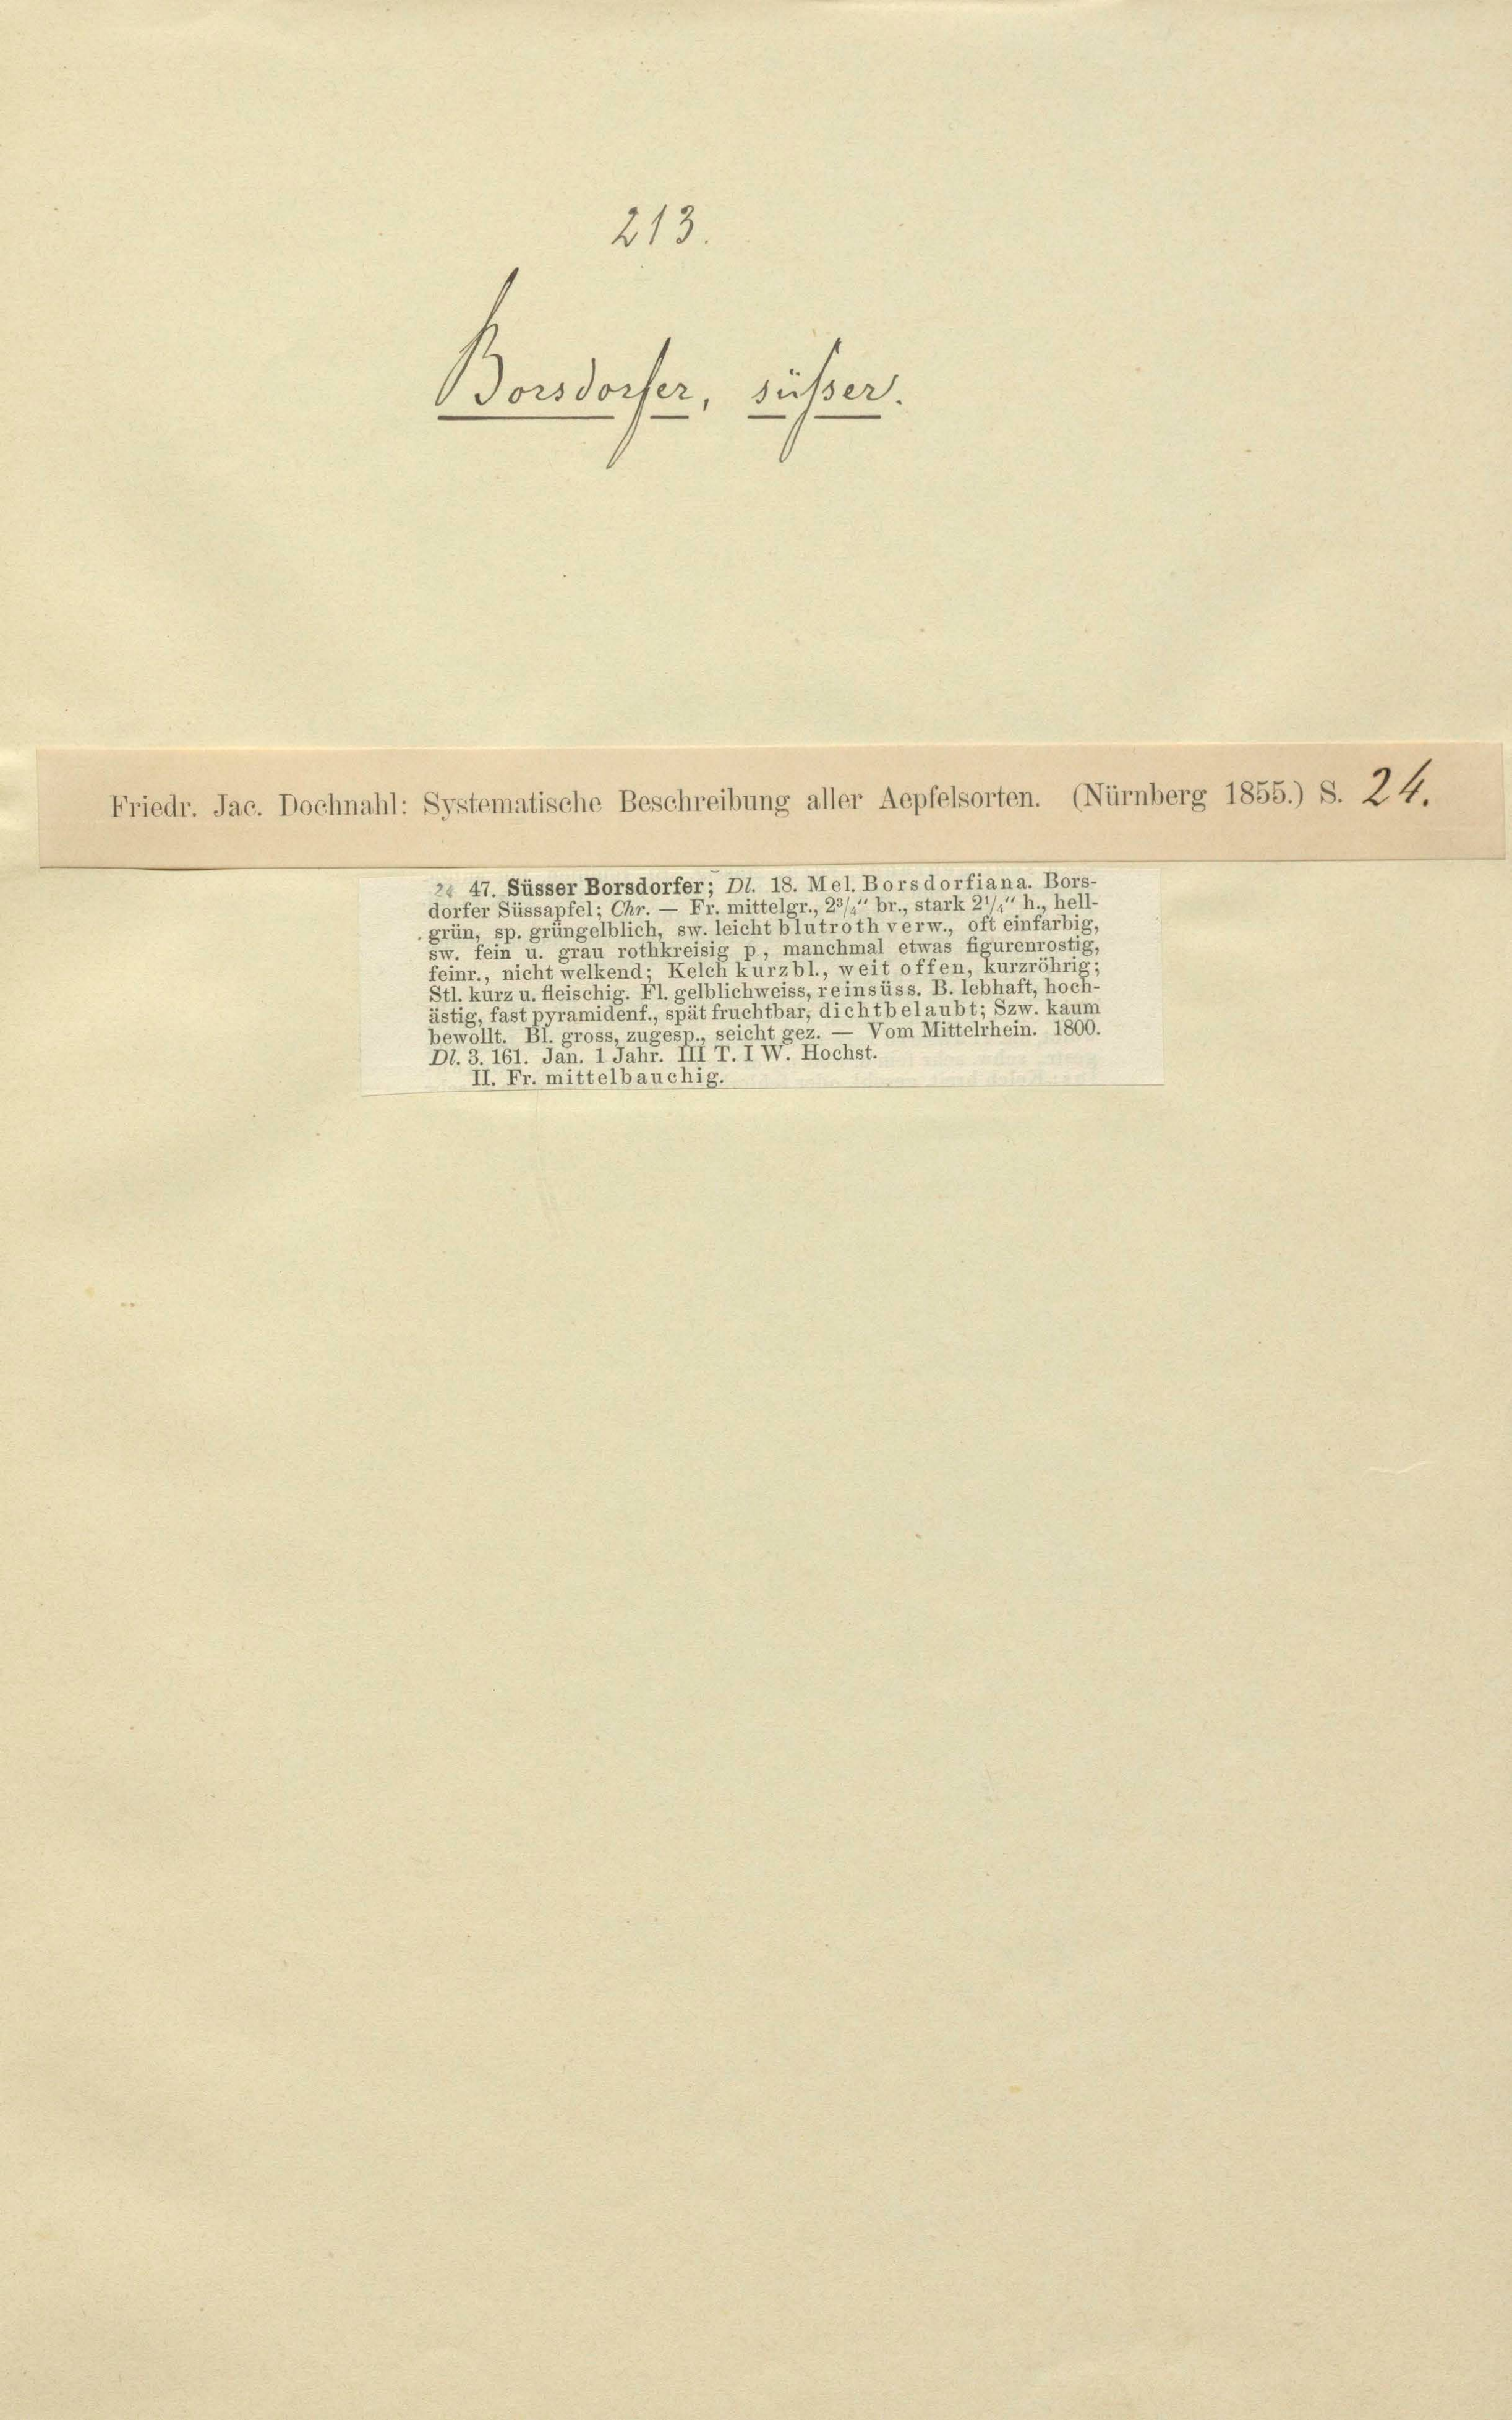 213.
Borsdorfer, süßer.
Friedr. Jac. Dochnahl: Systematische Beschreibung aller Aepfelsorten. (Nürnberg 1855.) S. 24.
24 47. Süsser Borsdorfer; Dl. 18. Mel. Borsdorfiana. Bors-
dorfer Süssapfel; Chr. — Fr. mittelgr., 2³/₄“ br., stark 2¹/₄“ h., hell-
grün, sp. grüngelblich, sw. leicht blutroth verw., oft einfarbig,
sw. fein u. grau rothkreisig p, manchmal etwas figurenrostig,
feinr., nicht welkend; Kelch kurzbl., weit offen, kurzröhrig;
Stl. kurz u. fleischig. Fl. gelblichweiss, reinsüss. B. lebhaft, hoch-
ästig, fast pyramidenf., spät fruchtbar, dichtbelaubt; Szw. kaum
bewollt. Bl. gross, zugesp., seicht gez. — Vom Mittelrhein. 1800.
Dl. 3. 161. Jan. 1 Jahr. III T. I W. Hochst.
II. Fr. mittelbauchig.